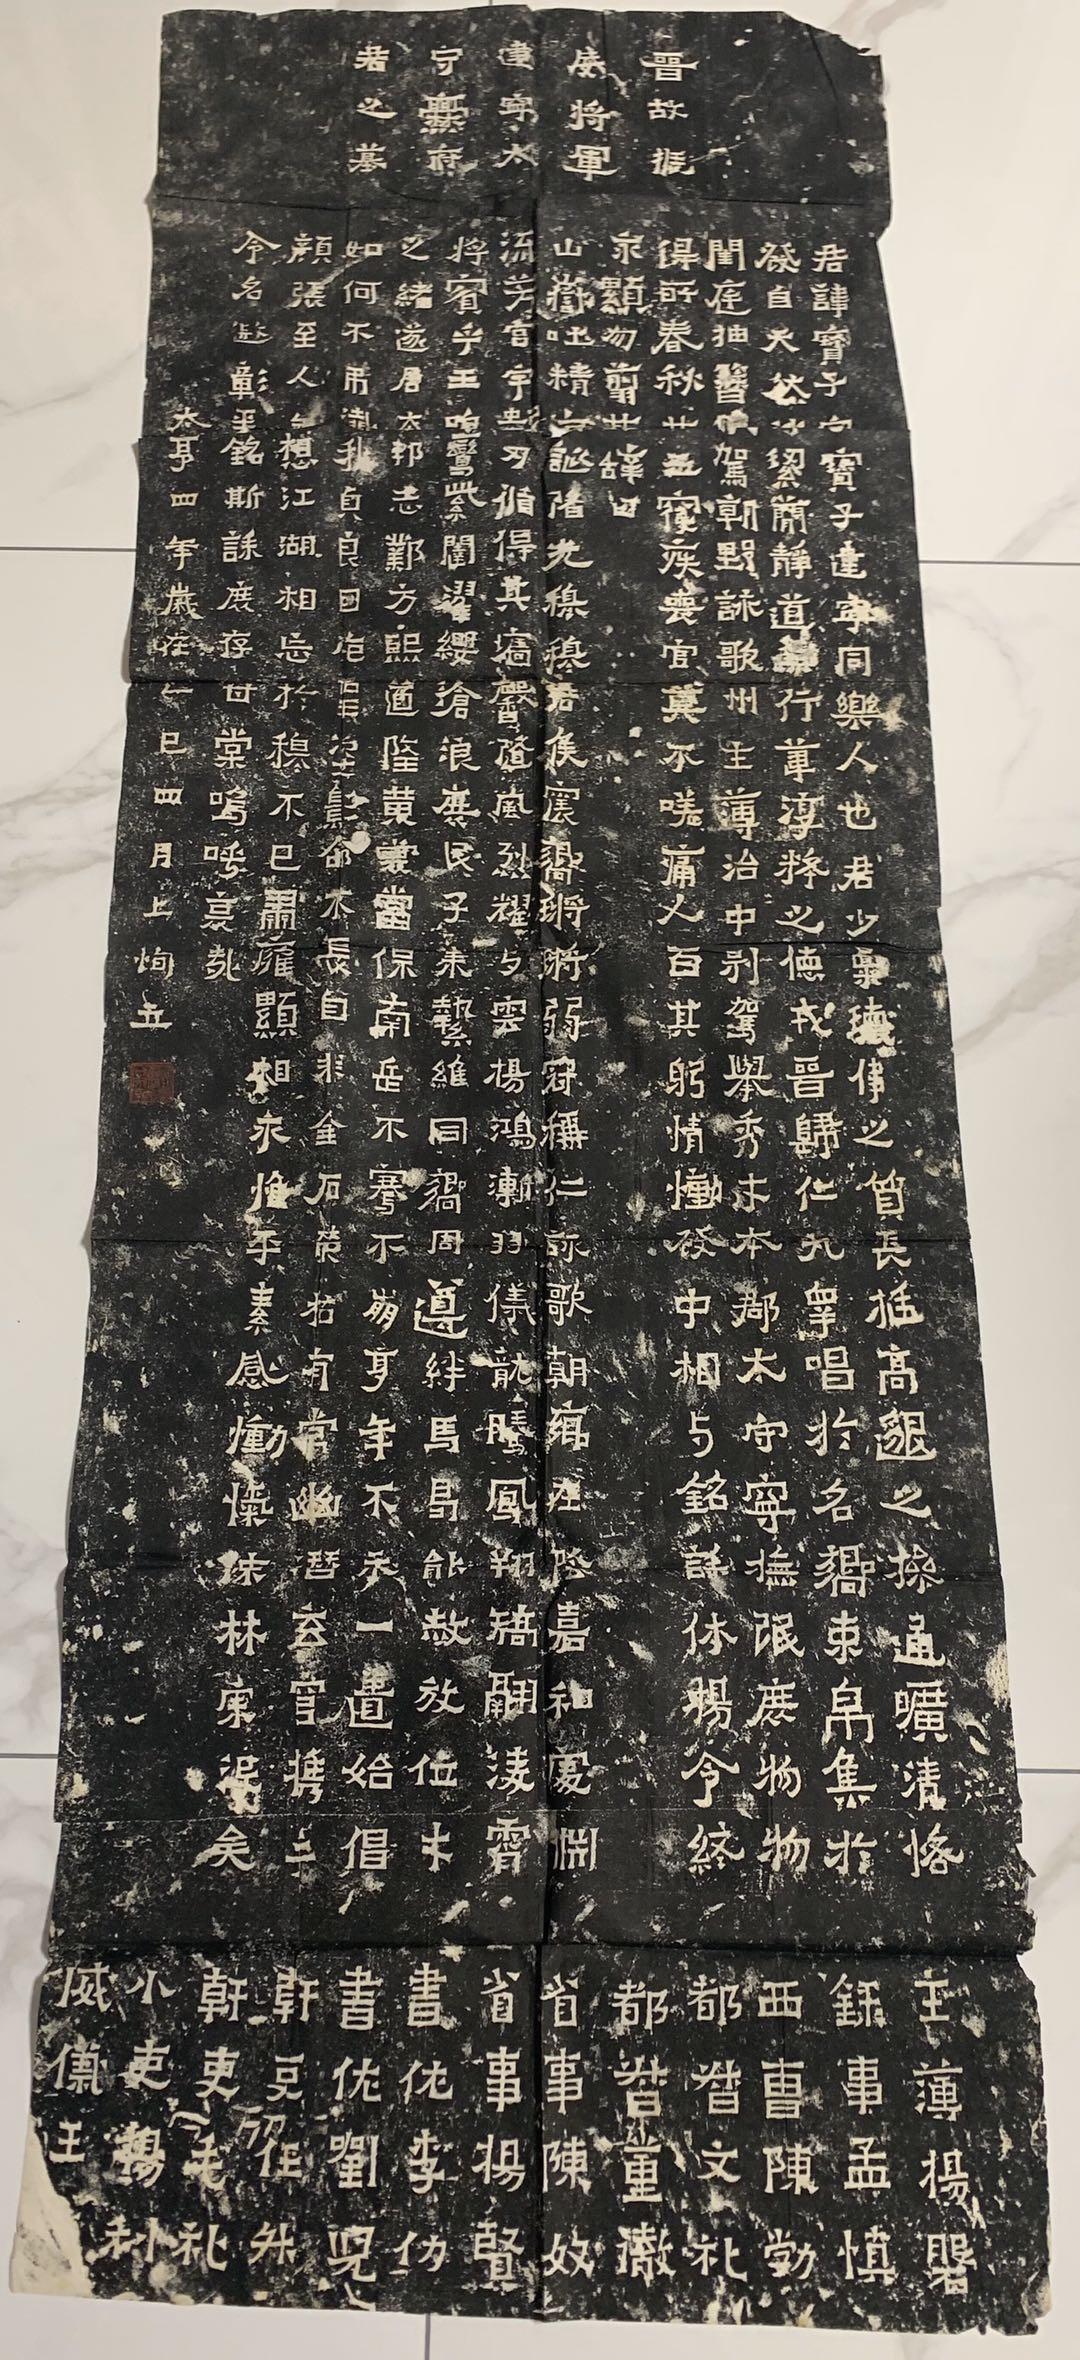 晉故振
威將軍
建寧太
守爨府
君之墓
君諱寶子字寶子建寧同樂人也君少稟瓌偉之質長挺高邈之操通曠清恪
發自天然冰絜簡靜道兼行葦淳粹之德戎晉歸仁九皋唱於名嚮束帛集於
閨庭抽簪俟駕朝野詠歌州主薄治中別駕舉秀才本郡太守寧撫氓庶物物
得所春秋廿五寢疾喪官莫不嗟痛人百其躬情慟發中相与銘誄休揚令終
永顯勿翦其辭曰
山嶽吐精海誕陼光穆穆君侯震嚮鏘鏘弱冠稱仁詠歌朝鄉在陰嘉和處淵
流芳宮宇數刃循得其牆馨隨風烈耀与雲揚鴻漸羽儀龍騰鳳翔矯翮淩霄
將賓乎王鳴鸞紫闥濯纓滄浪庶民子來縶維同嚮周遵絆馬曷能赦放位才
之緒遂居本邦志鄴方熙道隆黃裳當保南岳不騫不崩享年不永一匱始倡
如何不弔殲我貞良回抱聖姿影命不長自非金石榮枯有常幽潛玄穹攜手
顏張至人無想江湖相忘於穆不已肅雍顯相永惟平素感慟忾慷林宗沒矣
令名遐彰爰銘斯誄庶存甘棠嗚呼哀哉
太亨四年歲在乙巳四月上恂立
主薄楊磐
錄事孟慎
西曹陳勃
都督文礼
都督董徹
省事陳奴
省事楊賢
書佐李仂
書佐劉兒
幹吏任升
幹吏毛礼
小吏楊利
威儀王